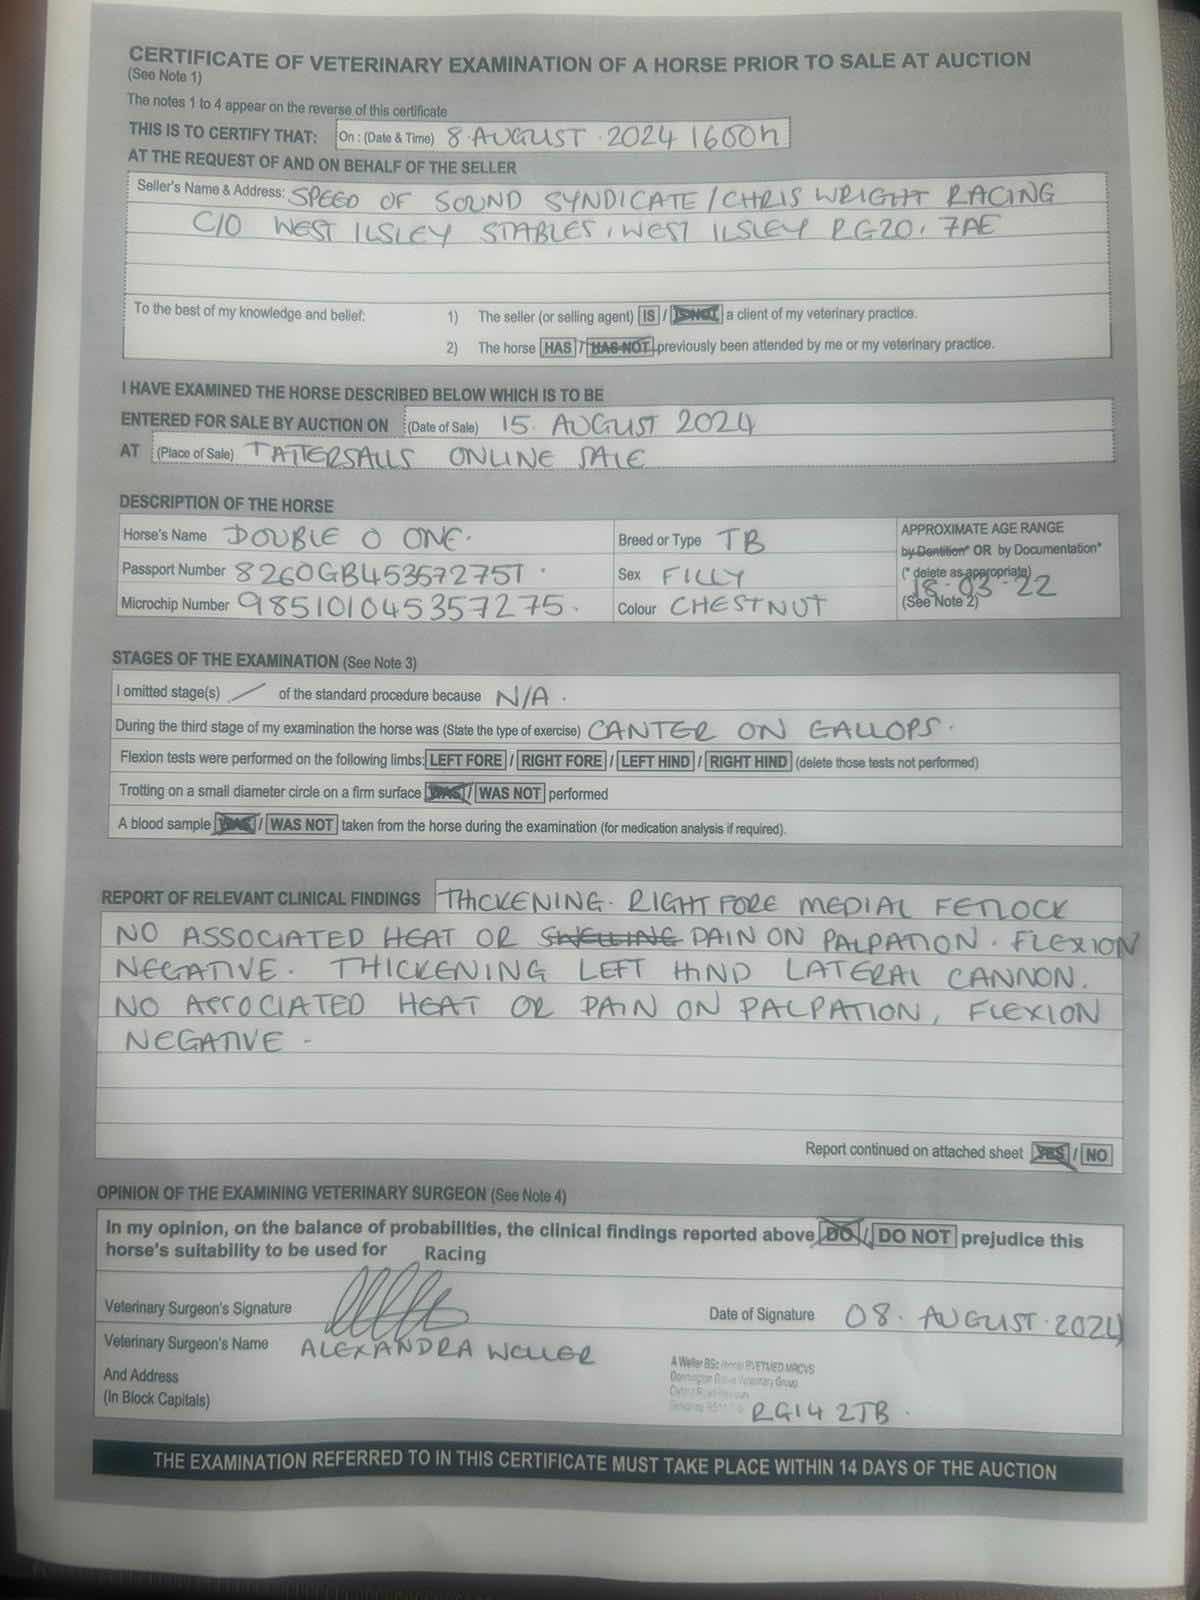 CERTIFICATE OF VETERINARY EXAMINATION OF A HORSE PRIOR TO SALE AT AUCTION
(See Note 1)
The notes 1 to 4 appear on the reverse of this certificate
THIS IS TO CERTIFY THAT: On : (Date & Time) 8 . AUGUST . 2024 1600h
AT THE REQUEST OF AND ON BEHALF OF THE SELLER
Seller's Name & Address: SPEED OF SOUND SYNDICATE / CHRIS WRIGHT RACING
C/O WEST ILSLEY STABLES, WEST ILSLEY RG20. 7AE
To the best of my knowledge and belief: 1) The seller (or selling agent) IS / IS NOT a client of my veterinary practice.
2) The horse HAS / HAS NOT previously been attended by me or my veterinary practice.
I HAVE EXAMINED THE HORSE DESCRIBED BELOW WHICH IS TO BE
ENTERED FOR SALE BY AUCTION ON (Date of Sale) 15. AUGUST 2024
AT (Place of Sale) TATTERSALLS ONLINE SALE
DESCRIPTION OF THE HORSE
Horse's Name DOUBLE O ONE. Breed or Type TB APPROXIMATE AGE RANGE
by Dentition* OR by Documentation*
Passport Number 8260GB45357275T . Sex FILLY (* delete as appropriate)
18-03-22
Microchip Number 985101045357275. Colour CHESTNUT (See Note 2)
STAGES OF THE EXAMINATION (See Note 3)
I omitted stage(s) / of the standard procedure because N/A .
During the third stage of my examination the horse was (State the type of exercise) CANTER ON GALLOPS.
Flexion tests were performed on the following limbs: LEFT FORE / RIGHT FORE / LEFT HIND / RIGHT HIND (delete those tests not performed)
Trotting on a small diameter circle on a firm surface WAS / WAS NOT performed
A blood sample WAS / WAS NOT taken from the horse during the examination (for medication analysis if required).
REPORT OF RELEVANT CLINICAL FINDINGS THICKENING. RIGHT FORE MEDIAL FETLOCK
NO ASSOCIATED HEAT OR SWELLING PAIN ON PALPATION. FLEXION
NEGATIVE. THICKENING LEFT HIND LATERAL CANNON.
NO ASSOCIATED HEAT OR PAIN ON PALPATION, FLEXION
NEGATIVE -
Report continued on attached sheet YES / NO
OPINION OF THE EXAMINING VETERINARY SURGEON (See Note 4)
In my opinion, on the balance of probabilities, the clinical findings reported above DO / DO NOT prejudice this
horse's suitability to be used for Racing
Veterinary Surgeon's Signature Date of Signature 08. AUGUST. 2024
Veterinary Surgeon's Name ALEXANDRA WELLER
And Address
(In Block Capitals)
A Weller BSc BVETMED MRCVS
Donnington Grove Veterinary Group
RG14 2JB .
THE EXAMINATION REFERRED TO IN THIS CERTIFICATE MUST TAKE PLACE WITHIN 14 DAYS OF THE AUCTION